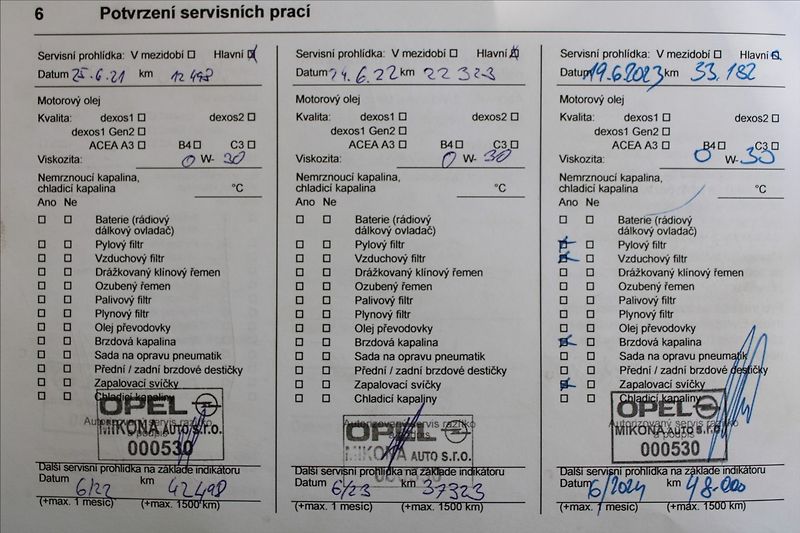 6 Potvrzení servisních prací
Servisní prohlídka: V mezidobí Hlavní
Datum 25.6.21 km 12 498
Motorový olej
Kvalita: dexos1 dexos2
dexos1 Gen2
ACEA A3 B4 C3
Viskozita: 0 W- 30
Nemrznoucí kapalina,
chladicí kapalina °C
Ano Ne
Baterie (rádiový
dálkový ovladač)
Pylový filtr
Vzduchový filtr
Drážkovaný klínový řemen
Ozubený řemen
Palivový filtr
Plynový filtr
Olej převodovky
Brzdová kapalina
Sada na opravu pneumatik
Přední / zadní brzdové destičky
Zapalovací svíčky
Chladicí kapaliny
OPEL
Autorizovaný servis razítko
a podpis
MIKONA AUTO s.r.o.
000530
Další servisní prohlídka na základě indikátoru
Datum 6/22 km 42498
(+max. 1 měsíc) (+max. 1500 km)
Servisní prohlídka: V mezidobí Hlavní
Datum 24.6.22 km 22 323
Motorový olej
Kvalita: dexos1 dexos2
dexos1 Gen2
ACEA A3 B4 C3
Viskozita: 0 W- 30
Nemrznoucí kapalina,
chladicí kapalina °C
Ano Ne
Baterie (rádiový
dálkový ovladač)
Pylový filtr
Vzduchový filtr
Drážkovaný klínový řemen
Ozubený řemen
Palivový filtr
Plynový filtr
Olej převodovky
Brzdová kapalina
Sada na opravu pneumatik
Přední / zadní brzdové destičky
Zapalovací svíčky
Chladicí kapaliny
Autorizovaný servis razítko
OPEL
a podpis
MIKONA AUTO s.r.o.
000530
Další servisní prohlídka na základě indikátoru
Datum 6/23 km 37323
(+max. 1 měsíc) (+max. 1500 km)
Servisní prohlídka: V mezidobí Hlavní
Datum 19.6.2023 km 33.182
Motorový olej
Kvalita: dexos1 dexos2
dexos1 Gen2
ACEA A3 B4 C3
Viskozita: 0 W- 30
Nemrznoucí kapalina,
chladicí kapalina °C
Ano Ne
Baterie (rádiový
dálkový ovladač)
Pylový filtr
Vzduchový filtr
Drážkovaný klínový řemen
Ozubený řemen
Palivový filtr
Plynový filtr
Olej převodovky
Brzdová kapalina
Sada na opravu pneumatik
Přední / zadní brzdové destičky
Zapalovací svíčky
Chladicí kapaliny
OPEL
Autorizovaný servis razítko
a podpis
MIKONA AUTO s.r.o.
000530
Další servisní prohlídka na základě indikátoru
Datum 6/2024 km 48.000
(+max. 1 měsíc) (+max. 1500 km)